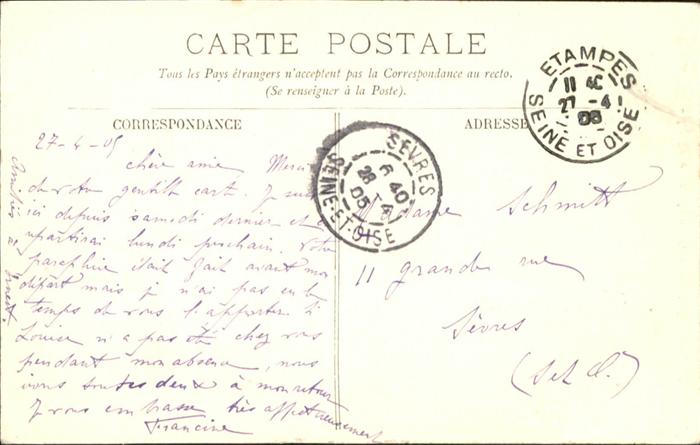 CARTE POSTALE
Tous les Pays étrangers n'acceptent pas la Correspondance au recto.
(Se renseigner à la Poste).
CORRESPONDANCE
27-4-05
chère amie, Merci
de votre gentille carte. Je suis
ici depuis samedi dernier et
repartirai lundi prochain. Votre
était fait avant mon
départ mais je n'ai pas eu le
temps de vous l'apporter. Si
Louise n'a pas été chez vous
pendant mon absence, nous
irons toutes deux à mon retour
Je vous embrasse très affectueusement
Francine
Amitiés Ernest
ADRESSE
Madame Schmitt
11 grande rue
Sèvres
(S et O.)
ETAMPES
11
27 -4
SEINE ET OISE
SÈVRES
6 40
28 -4
05
SEINE-ET-OISE